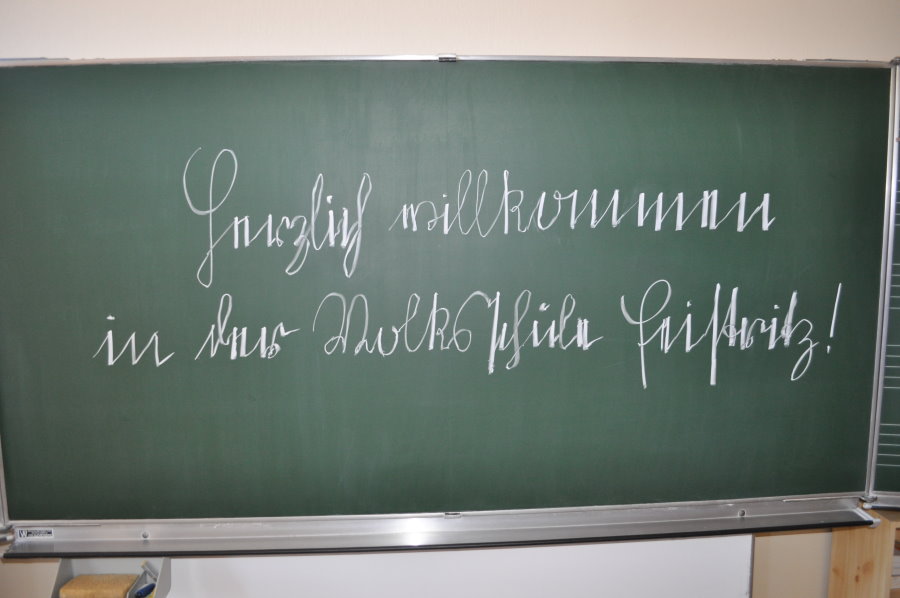 Herzlich willkommen
in der Volksschule Feistritz!